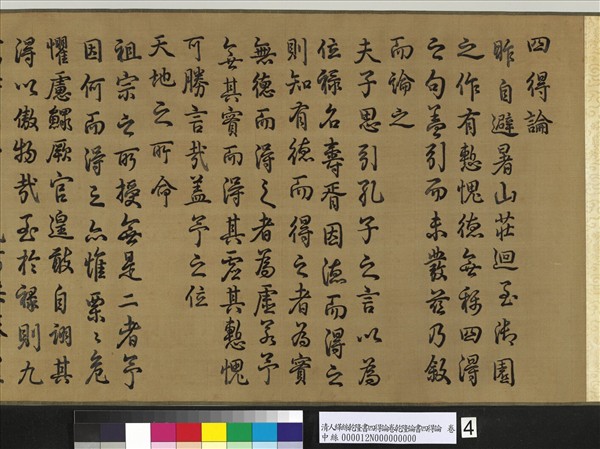 四得論
昨自避暑山莊迴至御園
之作有慙愧德無稱四得
之句蓋引而未發茲乃敘
而論之
夫子思引孔子之言以為
位祿名壽胥因德而得之
則知有德而得之者為實
無德而得之者為虛若予
無其實而得其虛其慙愧
可勝言哉蓋予之位
天地之所命
祖宗之所授無是二者予
因何而得之亦惟栗栗危
懼慮鰥厥官遑敢自詡其
得以傲物哉至於祿則九
清人緙絲乾隆書四得論卷乾隆論書四得論 卷
中絲 000012N000000000
4